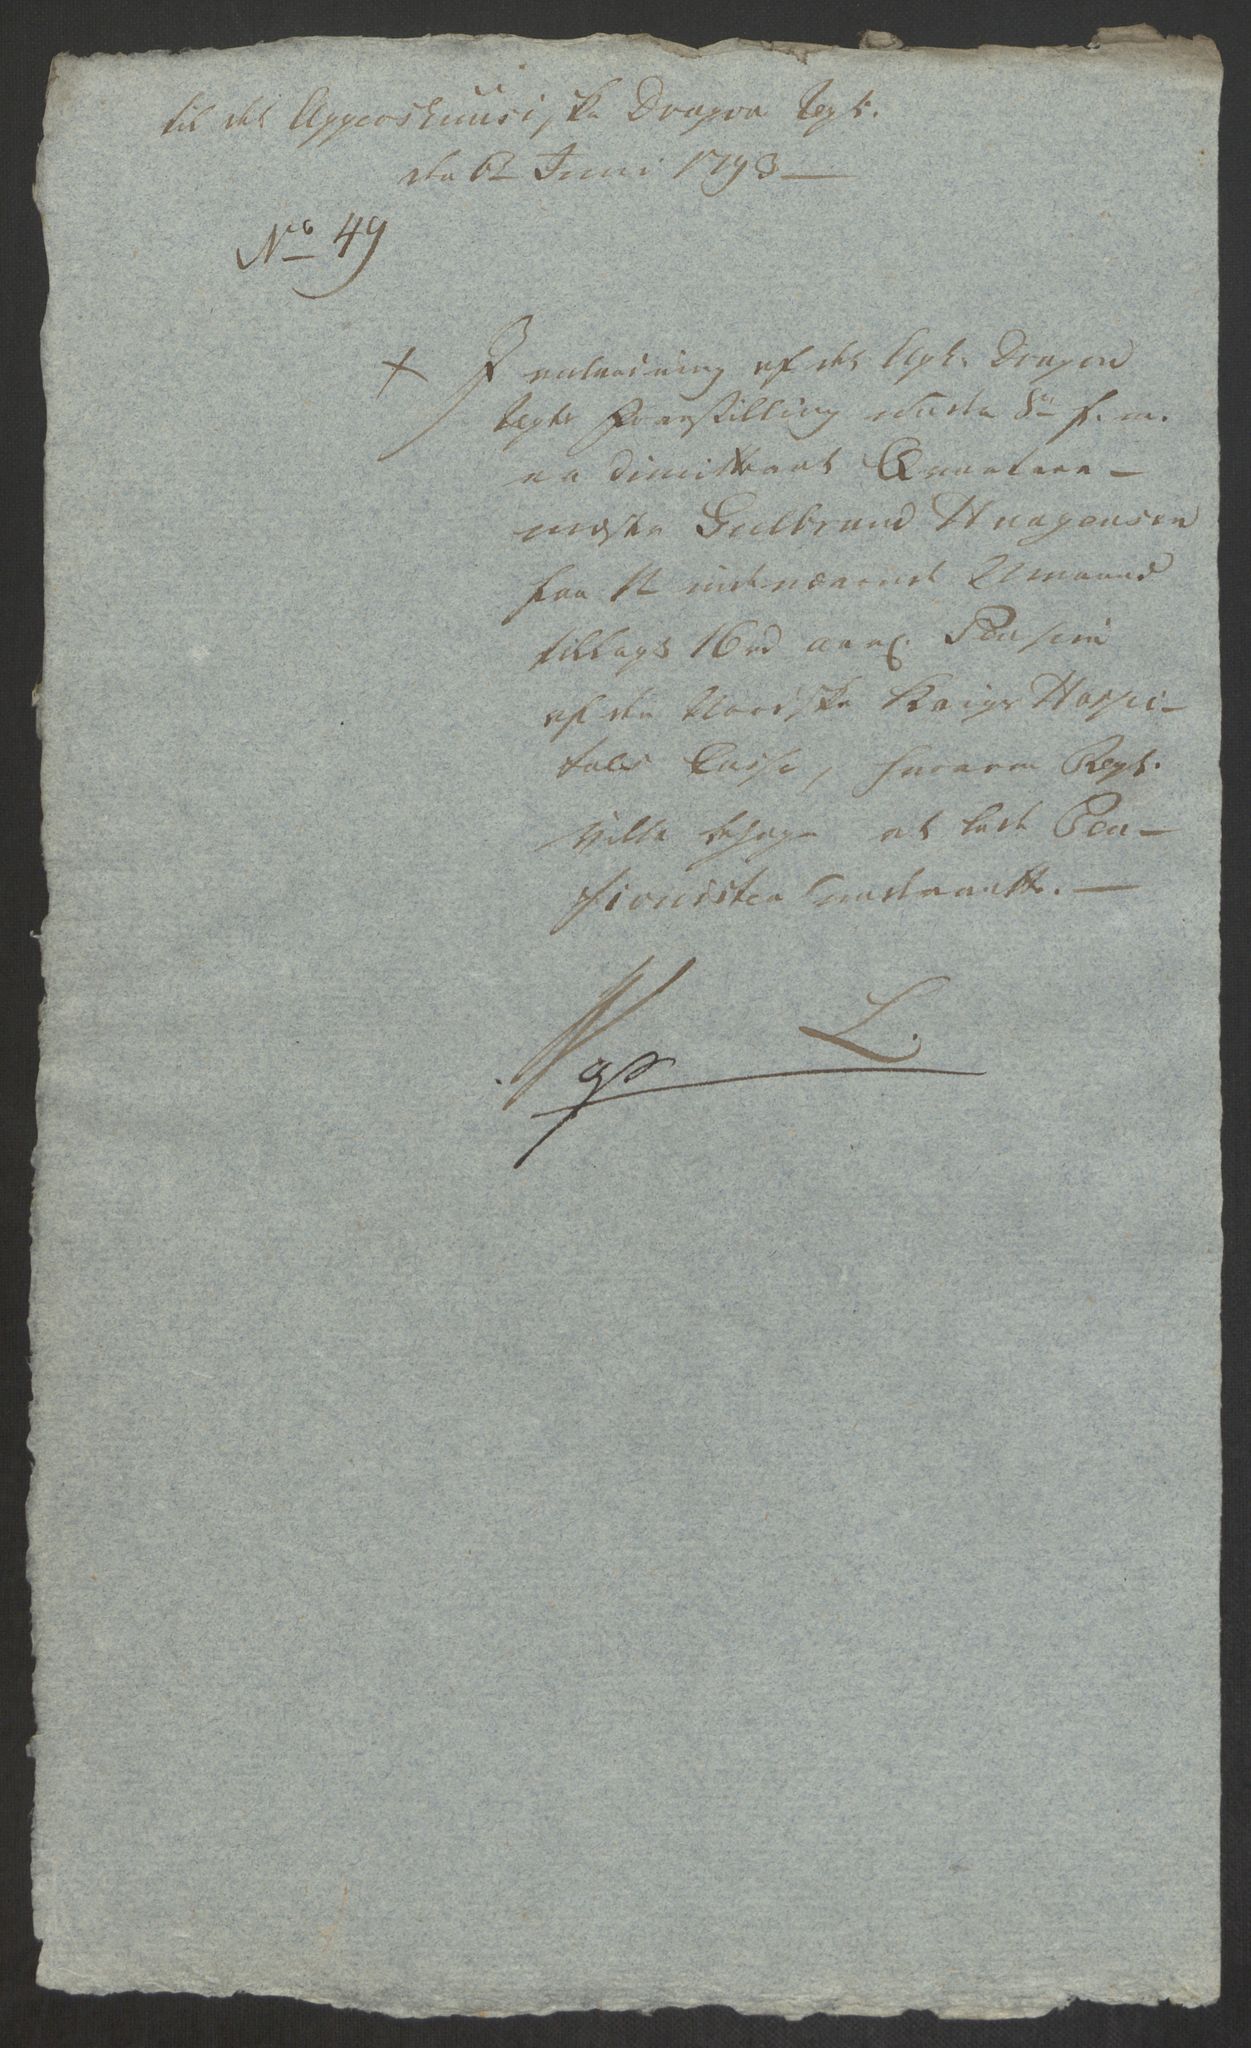 til det Aggershuusiske Dragon Regt.
den 6te Juni 1793 —
No 49
I anledning af det Agh. Dragon
Regts Forestilling under 8de f. m.
er dimitteret Qvarteer-
mester Gulbrand Haagensen
fra 1te indeværende Maaned
tillagt 16 rd aarl. Pension
af den Norske Krigs Hospi-
tals Casse, hvorom Regt.
ville behage at lade Pen-
sionisten underrette. —
L.